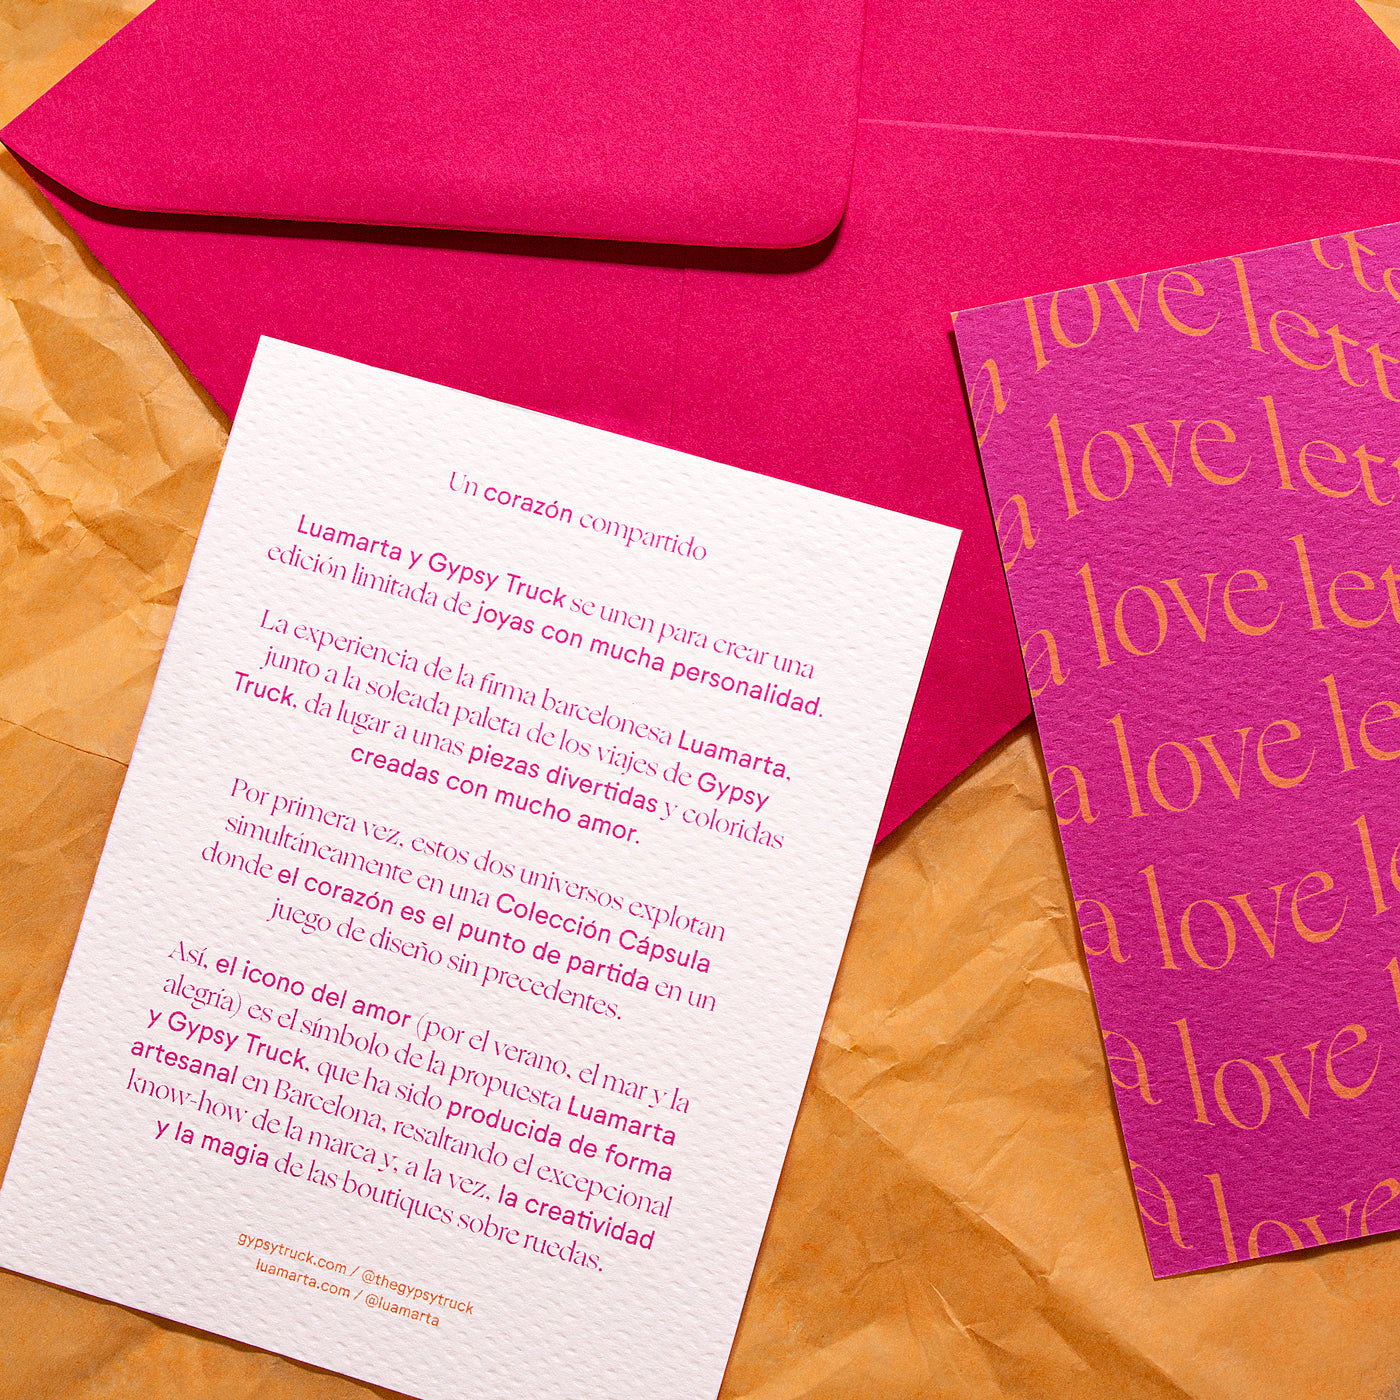 Un corazón compartido
Luamarta y Gypsy Truck se unen para crear una
edición limitada de joyas con mucha personalidad.
La experiencia de la firma barcelonesa Luamarta,
junto a la soleada paleta de los viajes de Gypsy
Truck, da lugar a unas piezas divertidas y coloridas
creadas con mucho amor.
Por primera vez, estos dos universos explotan
simultáneamente en una Colección Cápsula
donde el corazón es el punto de partida en un
juego de diseño sin precedentes.
Así, el icono del amor (por el verano, el mar y la
alegría) es el símbolo de la propuesta Luamarta
y Gypsy Truck, que ha sido producida de forma
artesanal en Barcelona, resaltando el excepcional
know-how de la marca y, a la vez, la creatividad
y la magia de las boutiques sobre ruedas.
gypsytruck.com / @thegypsytruck
luamarta.com / @luamarta
a love lett
a love lett
a love let
a love le
a love le
a love
a love